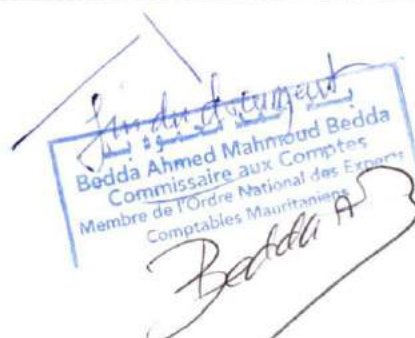 fin du document
بدّ أحمد محمود بدّ
Bedda Ahmed Mahmoud Bedda
Commissaire aux Comptes
Membre de l'Ordre National des Experts
Comptables Mauritaniens
Bedda A